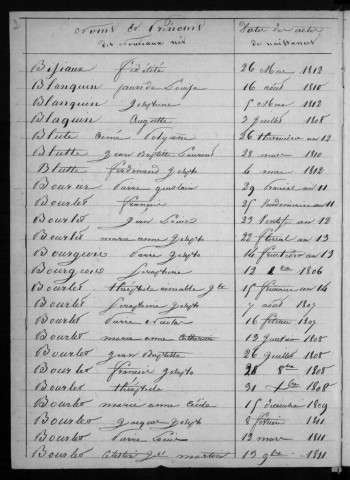 Noms et Prénoms des nouveaux nés Dates des actes de naissances
Bisiaux Fidélité 26 Mai 1812
Blanquin Louise 16 août 1810
Blanquin Joséphine 5 Mai 1812
Blaquin Augustte 3 Juillet 1808
Blutte Aimé 26 thermidor an 12
Blutte Jean Baptiste Laurent 28 mars 1810
Blutte Ferdinand Joseph 6 mai 1812
Pierre 29 an 11
Bourlet François 25 Vendemiaire an 11
Bourlet Jean Louis 23 an 12
Bourlet marie anne Joseph 22 floréal an 13
Bourgeois Pierre Joseph 14 fructidor an 13
Bourgeois Séraphine 12 1806
Bourlet théophile aimable 15 frimaire an 14
Bourlet Séraphine Joseph 7 août 1807
Bourlet Pierre Nicolas 16 février 1807
Bourlet marie anne 13 1808
Bourlet Jean Baptiste 26 Juillet 1808
Bourlet François Joseph 28 8bre 1808
Bourlet théophile 31 Xbre 1808
Bourlet marie anne Cécile 15 décembre 1809
Bourlet Jacques Joseph 8 février 1811
Bourlet Pierre Louis 12 mars 1811
Bourlet martin 13 9bre 1811